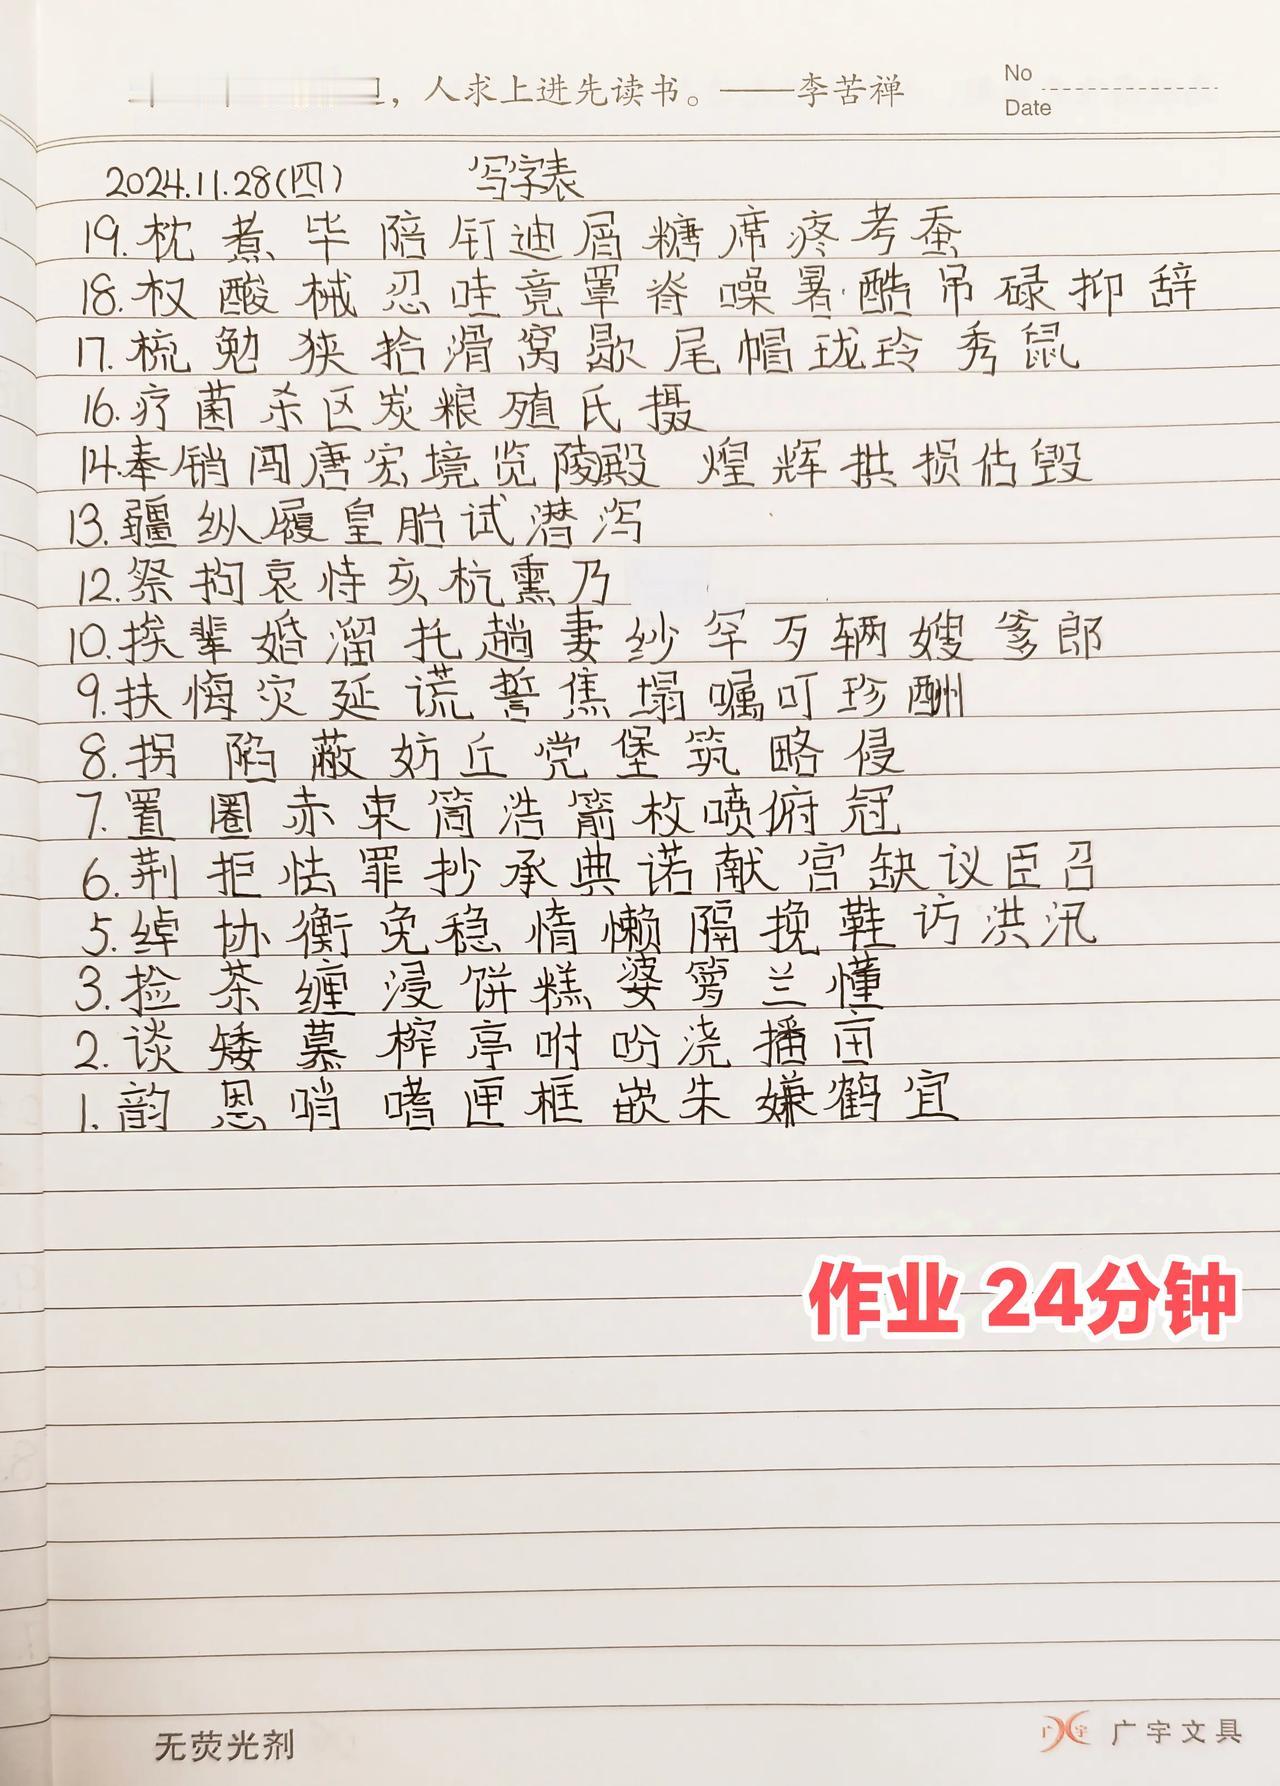 ，人求上进先读书。——李苦禅
No
Date
2024.11.28(四) 写字表
19. 枕 煮 毕 陪 钉 迪 屑 糖 席 疼 考 蚕
18. 权 酸 械 忍 哇 竟 罩 脊 噪 暑 酷 吊 碌 抑 辞
17. 梳 勉 狭 拾 滑 窝 歇 尾 帽 珑 玲 秀 鼠
16. 疗 菌 杀 区 炭 粮 殖 氏 摄
14. 奉 销 闯 唐 宏 境 览 陵 殿 煌 辉 拱 损 估 毁
13. 疆 纵 履 皇 胎 试 潜 泻
12. 祭 拘 哀 恃 亥 杭 熏 乃
10. 挨 辈 婚 溜 托 趟 妻 纱 罕 歹 辆 嫂 爹 郎
9. 扶 悔 灾 延 谎 誓 焦 塌 嘱 叮 珍 酬
8. 拐 陷 蔽 妨 丘 党 堡 筑 略 侵
7. 置 圈 赤 束 筒 浩 箭 枚 喷 俯 冠
6. 荆 拒 怯 罪 抄 承 典 诺 献 宫 缺 议 臣 召
5. 绰 协 衡 免 稳 惰 懒 隔 挽 鞋 访 洪 汛
3. 捡 茶 缠 浸 饼 糕 婆 箩 兰 懂
2. 谈 矮 慕 榨 亭 咐 吩 浇 播 亩
1. 韵 恩 哨 嗜 匣 框 嵌 朱 嫌 鹤 宜
作业 24分钟
无荧光剂
广宇 广宇文具